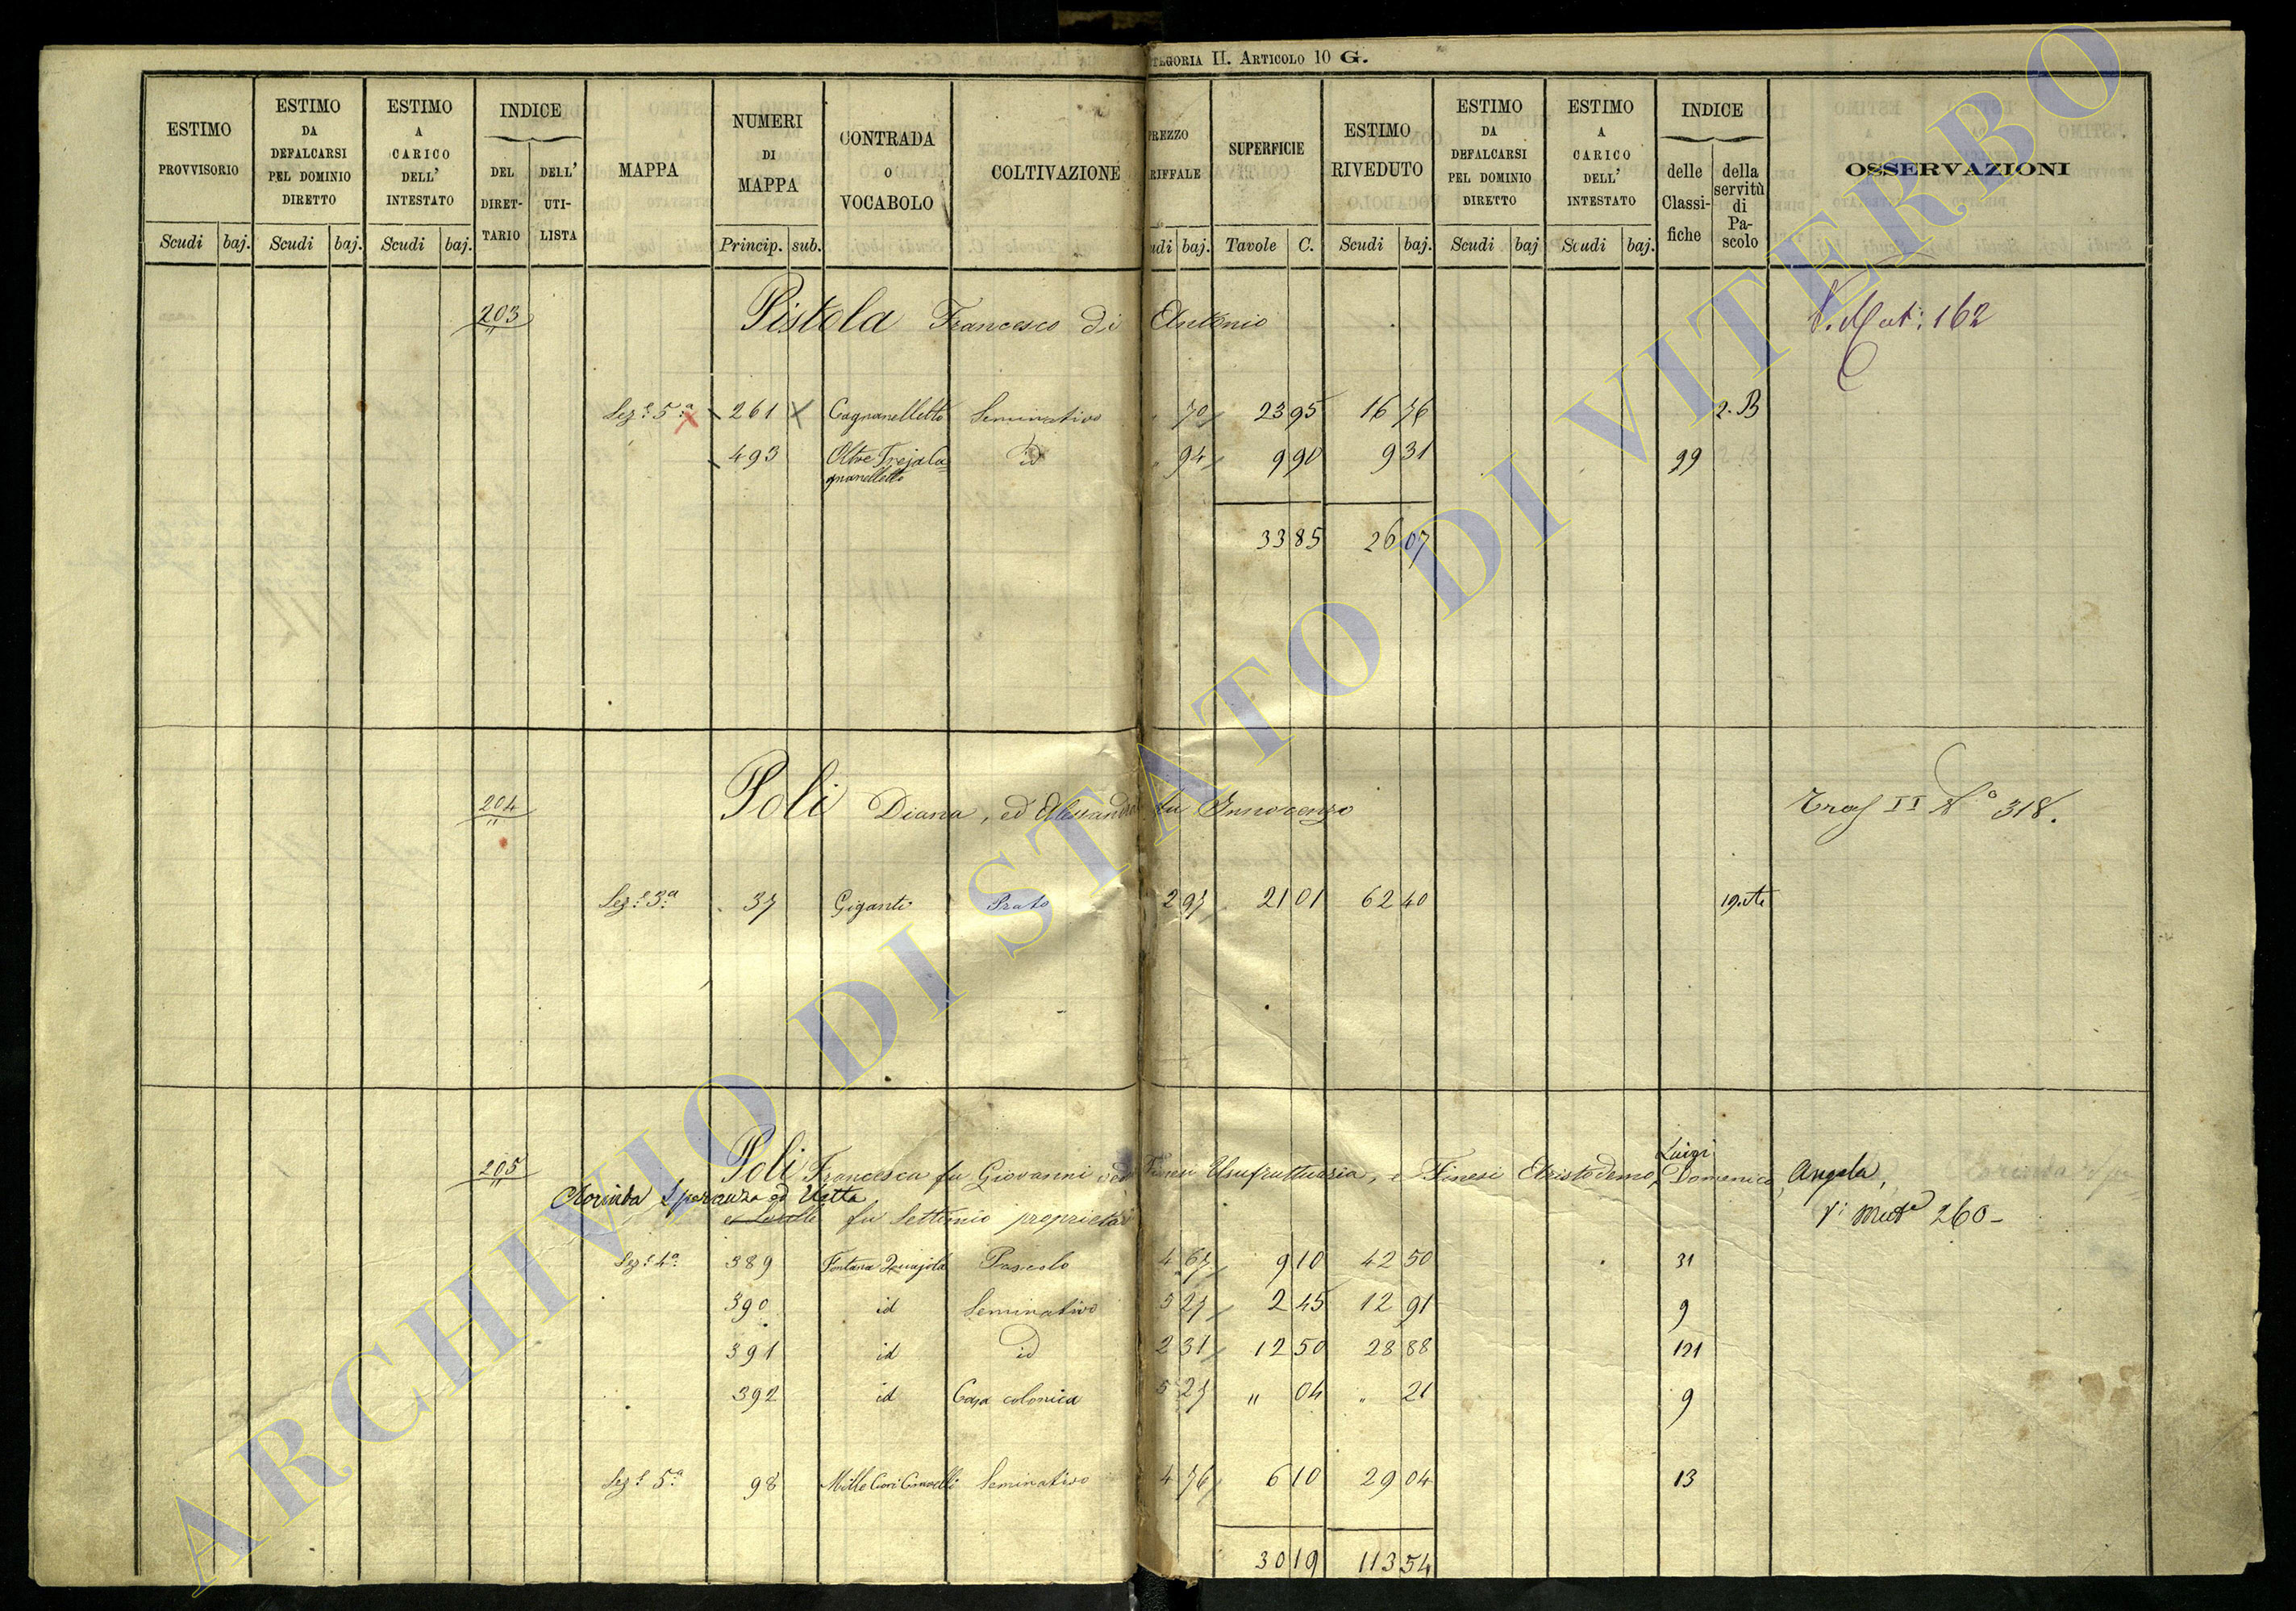 TEGORIA II. ARTICOLO 10 G.
ESTIMO PROVVISORIO | ESTIMO DA DEFALCARSI PEL DOMINIO DIRETTO | ESTIMO A CARICO DELL' INTESTATO | INDICE DEL DIRETTARIO | DELL' UTILISTA | MAPPA | NUMERI DI MAPPA | CONTRADA O VOCABOLO | COLTIVAZIONE | REZZO RIFFALE | SUPERFICIE | ESTIMO RIVEDUTO | ESTIMO DA DEFALCARSI PEL DOMINIO DIRETTO | ESTIMO A CARICO DELL' INTESTATO | INDICE delle Classifiche | della servitù di Pascolo | OSSERVAZIONI
Scudi baj. Scudi baj. Scudi baj. Princip. sub. udi baj. Tavole C. Scudi baj. Scudi baj Scudi baj.
203 Pistola Francesco di Antonio V. Mut: 162
Sez: 5ª 261 Cagnanelletto Seminativo " 70 23 95 16 76 2. B
493 Oltre Treja Cagnanelletto id " 94 9 90 9 31 99
33 85 26 07
204 Poli Diana, ed Alessandra fu Innocenzo Tras II N° 318.
Sez: 3ª 37 Giganti Prato 2 97 21 01 62 40 19.
205 Poli Francesca fu Giovanni ved Finesi Usufruttuaria, e Finesi Aristodemo, Luigi Domenico, Angela,
Clorinda Speranza ed
fu Settimio proprietari V: Mutª 260 -
Sez: 4ª 389 Fontana Pascolo 4 67 9 10 42 50 31
390 id Seminativo 5 27 2 45 12 91 9
391 id id 2 31 12 50 28 88 121
392 id Casa colonica 5 27 " 04 " 21 9
Sez: 5ª 98 Mille Seminativo 4 76 6 10 29 04 13
30 19 113 54
ARCHIVIO DI STATO DI VITERBO